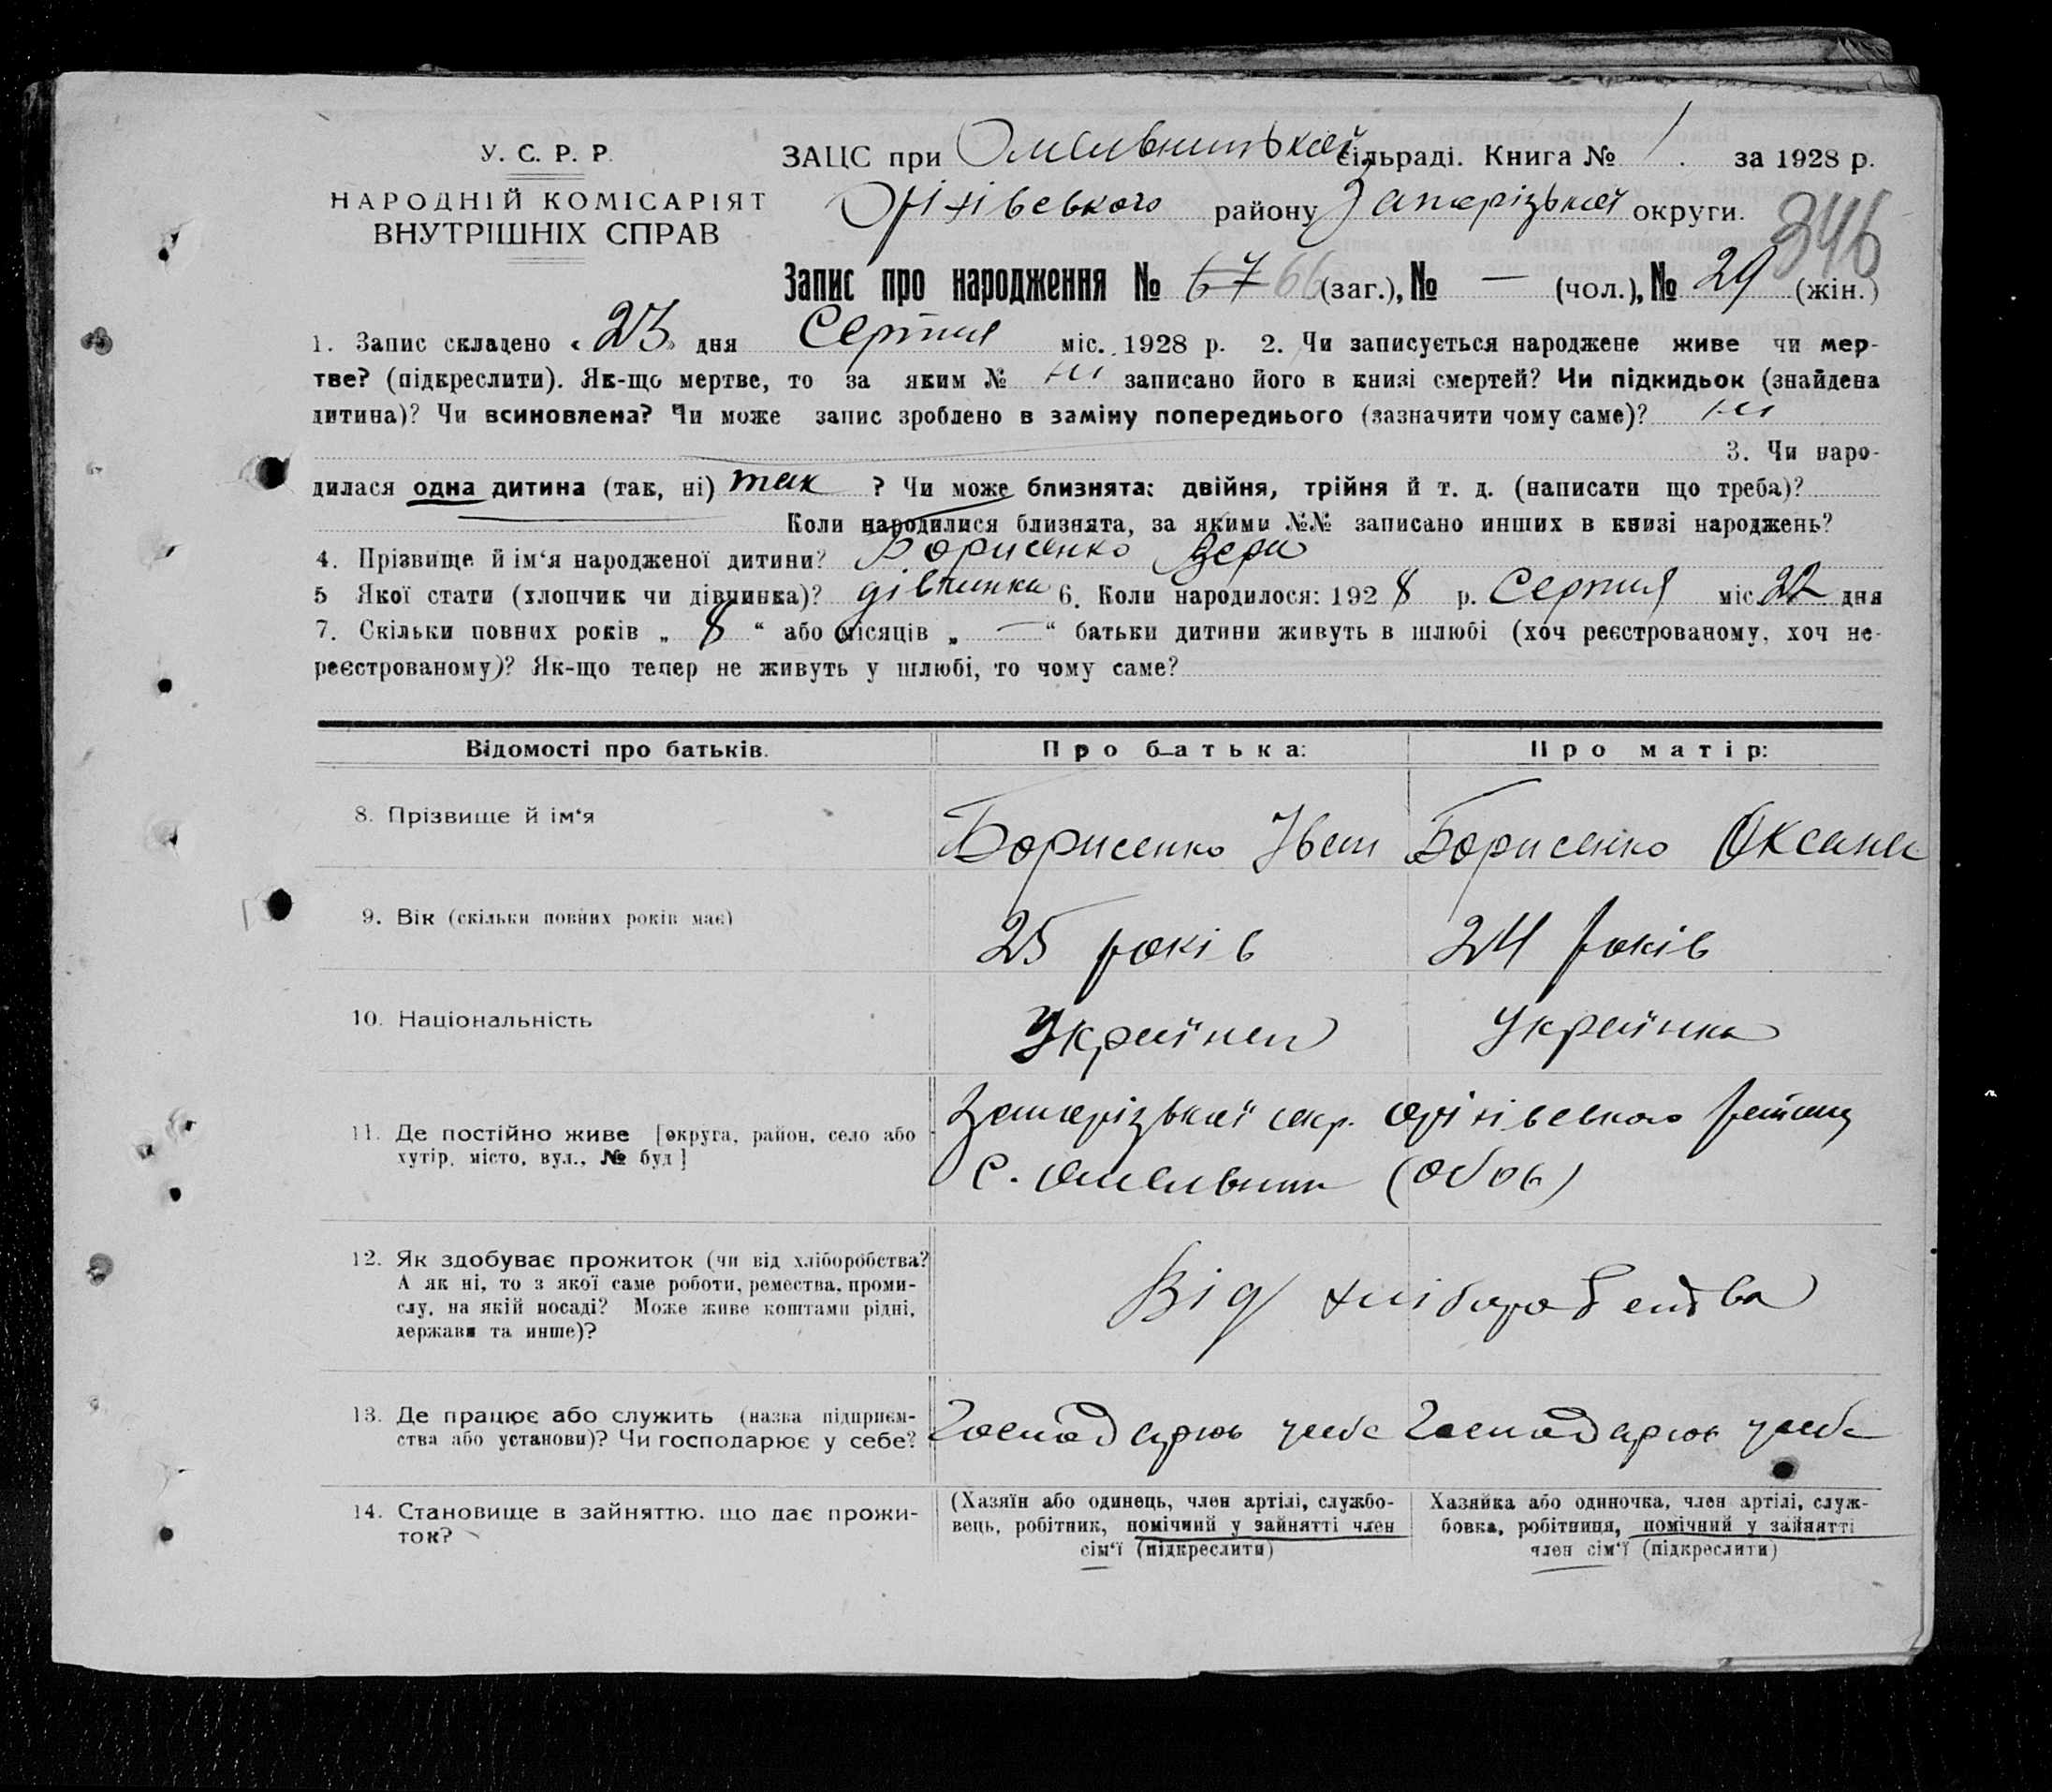 У. С. Р. Р.
НАРОДНІЙ КОМІСАРІЯТ
ВНУТРІШНІХ СПРАВ
ЗАЦС при Омельницькій сільраді. Книга № 1. за 1928 р.
Оріхівського району Запорізької округи.
346
Запис про народження № 67 66 (заг.), № — (чол.), № 29 (жін.)
1. Запис складено « 23 » дня Серпня міс. 1928 р. 2. Чи записується народжене живе чи мер-
тве? (підкреслити). Як-що мертве, то за яким № ні записано його в книзі смертей? Чи підкидьок (знайдена
дитина)? Чи всиновлена? Чи може запис зроблено в заміну попереднього (зазначити чому саме)? ні
3. Чи наро-
дилася одна дитина (так, ні) так ? Чи може близнята: двійня, трійня й т. д. (написати що треба)?
Коли народилися близнята, за якими №№ записано инших в книзі народжень?
4. Прізвище й ім‘я народженої дитини? Борисенко Вера
5 Якої стати (хлопчик чи дівчинка)? дівчинка 6. Коли народилося: 1928 р. Серпня міс. 22 дня
7. Скільки повних років „ 8 “ або місяців „ — “ батьки дитини живуть в шлюбі (хоч реєстрованому, хоч не-
реєстрованому)? Як-що тепер не живуть у шлюбі, то чому саме?
Відомості про батьків. Про батька: Про матір:
8. Прізвище й ім‘я Борисенко Іван Борисенко Оксана
9. Вік (скільки повних років має) 25 років 24 років
10. Національність Українец Українка
11. Де постійно живе [округа, район, село або
хутір, місто, вул., № буд]
Запорізької окр. Оріхівського району
с. Омельник (обоє)
12. Як здобуває прожиток (чи від хліборобства?
А як ні, то з якої саме роботи, ремества, проми-
слу, на якій посаді? Може живе коштами рідні,
держави та инше)?
Від хліборобства
13. Де працює або служить (назва підприєм-
ства або установи)? Чи господарює у себе?
Господарює у себе Господарює у себе
14. Становище в зайняттю, що дає прожи-
ток?
(Хазяїн або одинець, член артілі, службо-
вець, робітник, помічний у зайнятті член
сім‘ї (підкреслити)
Хазяйка або одиночка, член артілі, служ-
бовка, робітниця, помічний у зайнятті
член сім‘ї (підкреслити)